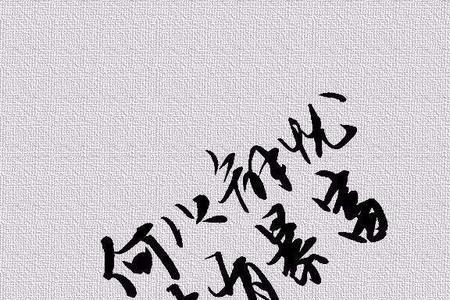 何以解忧
有暴富